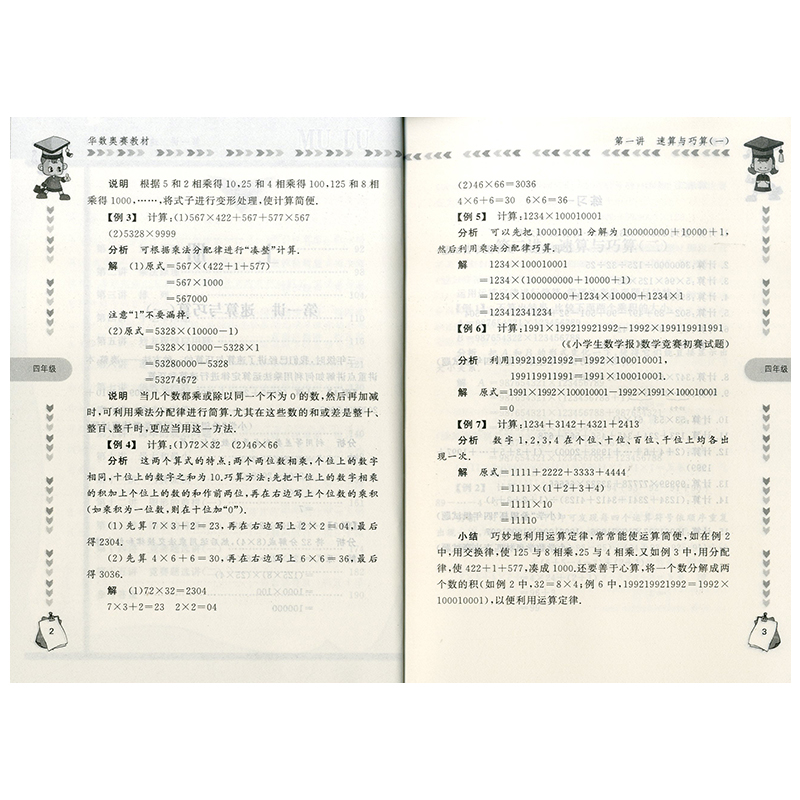 华数奥赛教材
说明 根据5和2相乘得10,25和4相乘得100,125和8相
乘得1000,……,将式子进行变形处理,使计算简便.
【例3】 计算:(1)567×422+567+577×567
(2)5328×9999
分析 可根据乘法分配律进行“凑整”计算.
解 (1)原式=567×(422+1+577)
=567×1000
=567000
注意“1”不要漏掉.
(2)原式=5328×(10000-1)
=5328×10000-5328×1
=53280000-5328
=53274672
说明 当几个数都乘或除以同一个不为0的数,然后再加减
时,可利用乘法分配律进行简算.尤其在这些数的和或差是整十、
整百、整千时,更应当用这一方法.
【例4】 计算:(1)72×32 (2)46×66
分析 这两个算式的特点:两个两位数相乘,个位上的数字
相同,十位上的数字之和为10.巧算方法:先把十位上的数字相乘
的积加上个位上的数的和作前两位,再在右边写上个位数的乘积
(如乘积为一位数,则在十位加“0”).
(1)先算7×3+2=23,再在右边写上2×2=04,最后
得2304.
(2)先算4×6+6=30,再在右边写上6×6=36,最后
得3036.
解 (1)72×32=2304
7×3+2=23 2×2=04
四年级
2
第一讲 速算与巧算(一)
(2)46×66=3036
4×6+6=30 6×6=36
【例5】 计算:1234×100010001
分析 可以先把100010001分解为100000000+10000+1,
然后利用乘法分配律巧算.
解 1234×100010001
=1234×(100000000+10000+1)
=1234×100000000+1234×10000+1234×1
=123412341234
【例6】 计算:1991×199219921992-1992×199119911991
(《小学生数学报》数学竞赛初赛试题)
分析 利用199219921992=1992×100010001,
199119911991=1991×100010001.
解 原式=1991×1992×100010001-1992×1991×100010001
=0
【例7】 计算:1234+3142+4321+2413
分析 数字1,2,3,4在个位、十位、百位、千位上均各出
现一次.
解 原式=1111+2222+3333+4444
=1111×(1+2+3+4)
=1111×10
=11110
小结 巧妙地利用运算定律,常常能使运算简便,如在例
2中,用交换律,使125与8相乘,25与4相乘.又如例3中,用分配
律,使422+1+577,凑成1000.还要善于心算,将一个数分解成两
个数的积(如例2中,32=8×4;例6中,199219921992=1992×
100010001),以便利用运算定律.
四年级
3